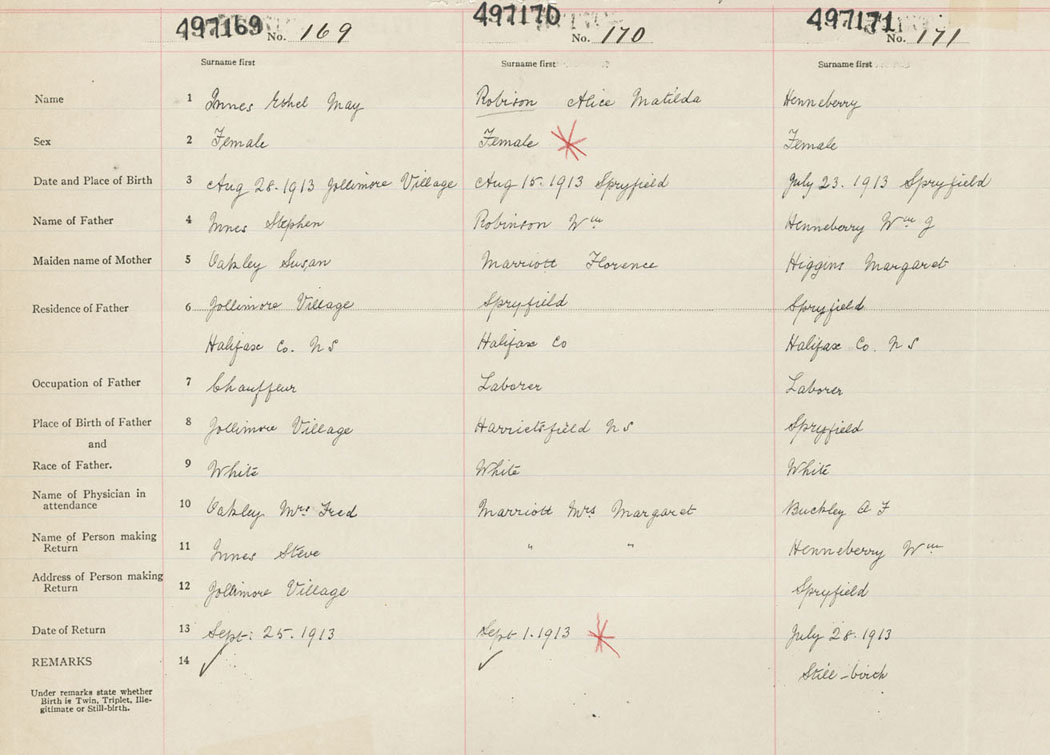 497169 No. 169 497170 No. 170 497171 No. 171
Surname first Surname first Surname first
Name 1 Innes Ethel May Robison Alice Matilda Henneberry
Sex 2 Female Female Female
Date and Place of Birth 3 Aug 28. 1913 Jollimore Village Aug 15. 1913 Spryfield July 23. 1913 Spryfield
Name of Father 4 Innes Stephen Robinson Wm Henneberry Wm J
Maiden name of Mother 5 Oakley Susan Marriott Florence Higgins Margaret
Residence of Father 6 Jollimore Village Spryfield Spryfield
Halifax Co. N S Halifax Co Halifax Co. N S
Occupation of Father 7 Chauffeur Laborer Laborer
Place of Birth of Father 8 Jollimore Village Harrietsfield N S Spryfield
and
Race of Father. 9 White White White
Name of Physician in
attendance 10 Oakley Mrs Fred Marriott Mrs Margaret Buckley A F
Name of Person making
Return 11 Innes Steve " " Henneberry Wm
Address of Person making
Return 12 Jollimore Village Spryfield
Date of Return 13 Sept: 25. 1913 Sept 1. 1913 July 28. 1913
REMARKS 14 ✓ ✓ Still-birth
Under remarks state whether
Birth is Twin, Triplet, Ille-
gitimate or Still-birth.